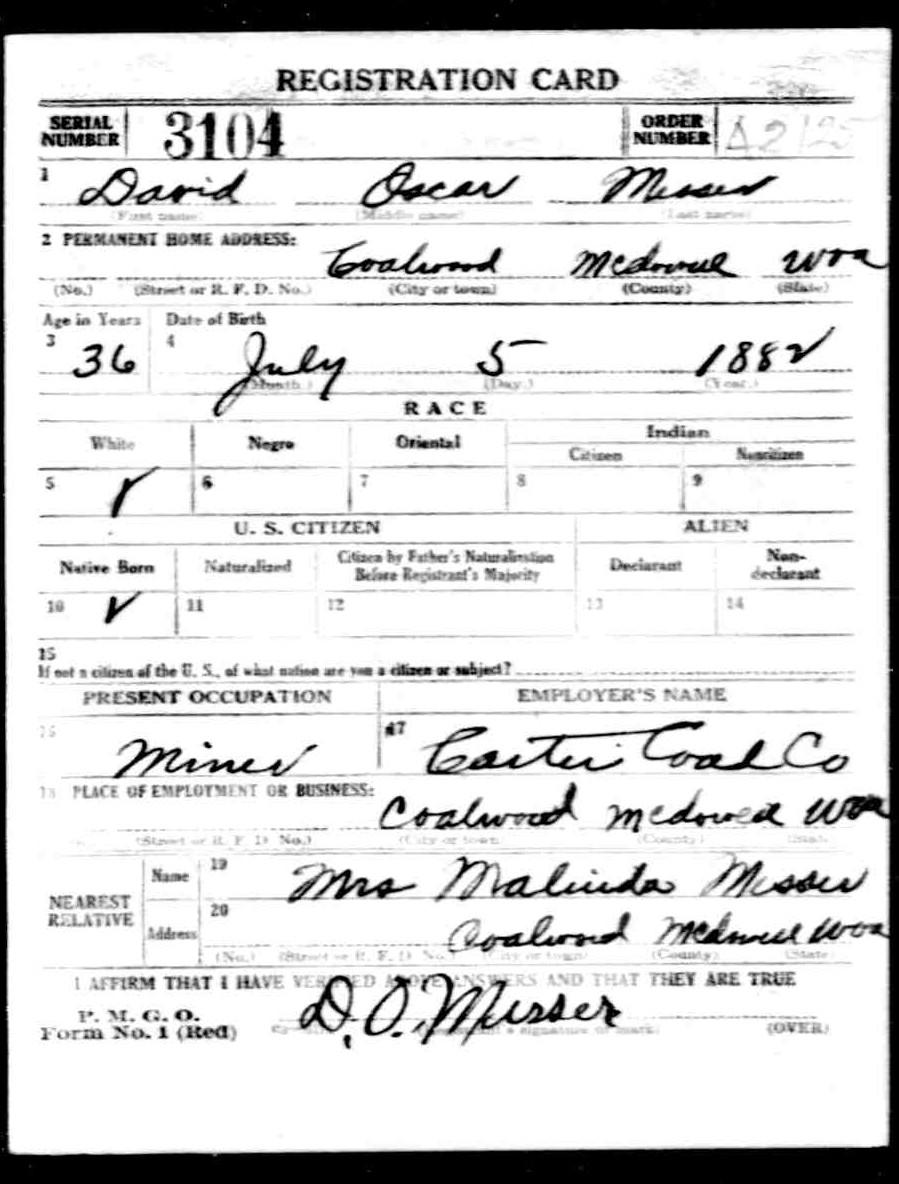 REGISTRATION CARD
SERIAL NUMBER 3104 ORDER NUMBER A2125
1 David Oscar Messer
(First name) (Middle name) (Last name)
2 PERMANENT HOME ADDRESS:
Coalwood McDowell Wva
(No.) (Street or R. F. D. No.) (City or town) (County) (State)
Age in Years Date of Birth
3 36 4 July 5 1882
(Month.) (Day.) (Year.)
RACE
White Negro Oriental Indian
Citizen Noncitizen
5 ✓ 6 7 8 9
U. S. CITIZEN ALIEN
Native Born Naturalized Citizen by Father's Naturalization Before Registrant's Majority Declarant Non-declarant
10 ✓ 11 12 13 14
15
If not a citizen of the U. S., of what nation are you a citizen or subject?
PRESENT OCCUPATION EMPLOYER'S NAME
16 Miner 17 Carter Coal Co
18 PLACE OF EMPLOYMENT OR BUSINESS:
Coalwood McDowell Wva
(Street or R. F. D. No.) (City or town) (County) (State)
NEAREST RELATIVE Name 19 Mrs Malinda Messer
Address 20 Coalwood McDowell Wva
(No.) (Street or R. F. D. No.) (City or town) (County) (State)
I AFFIRM THAT I HAVE VERIFIED ABOVE ANSWERS AND THAT THEY ARE TRUE
P. M. G. O.
Form No. 1 (Red) D. O. Musser (OVER)